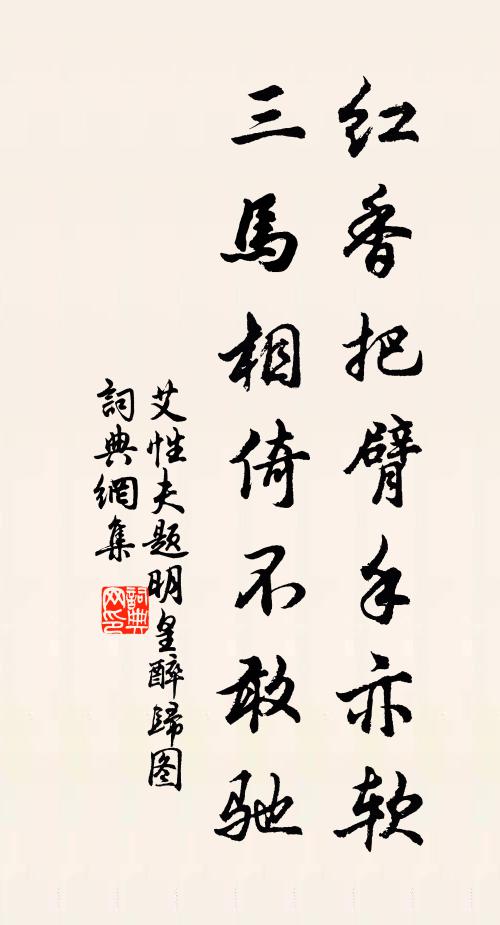 红香把臂手亦软
三馬相倚不敢馳
艾性夫题明皇醉歸图
詞典網集
詞典
网印